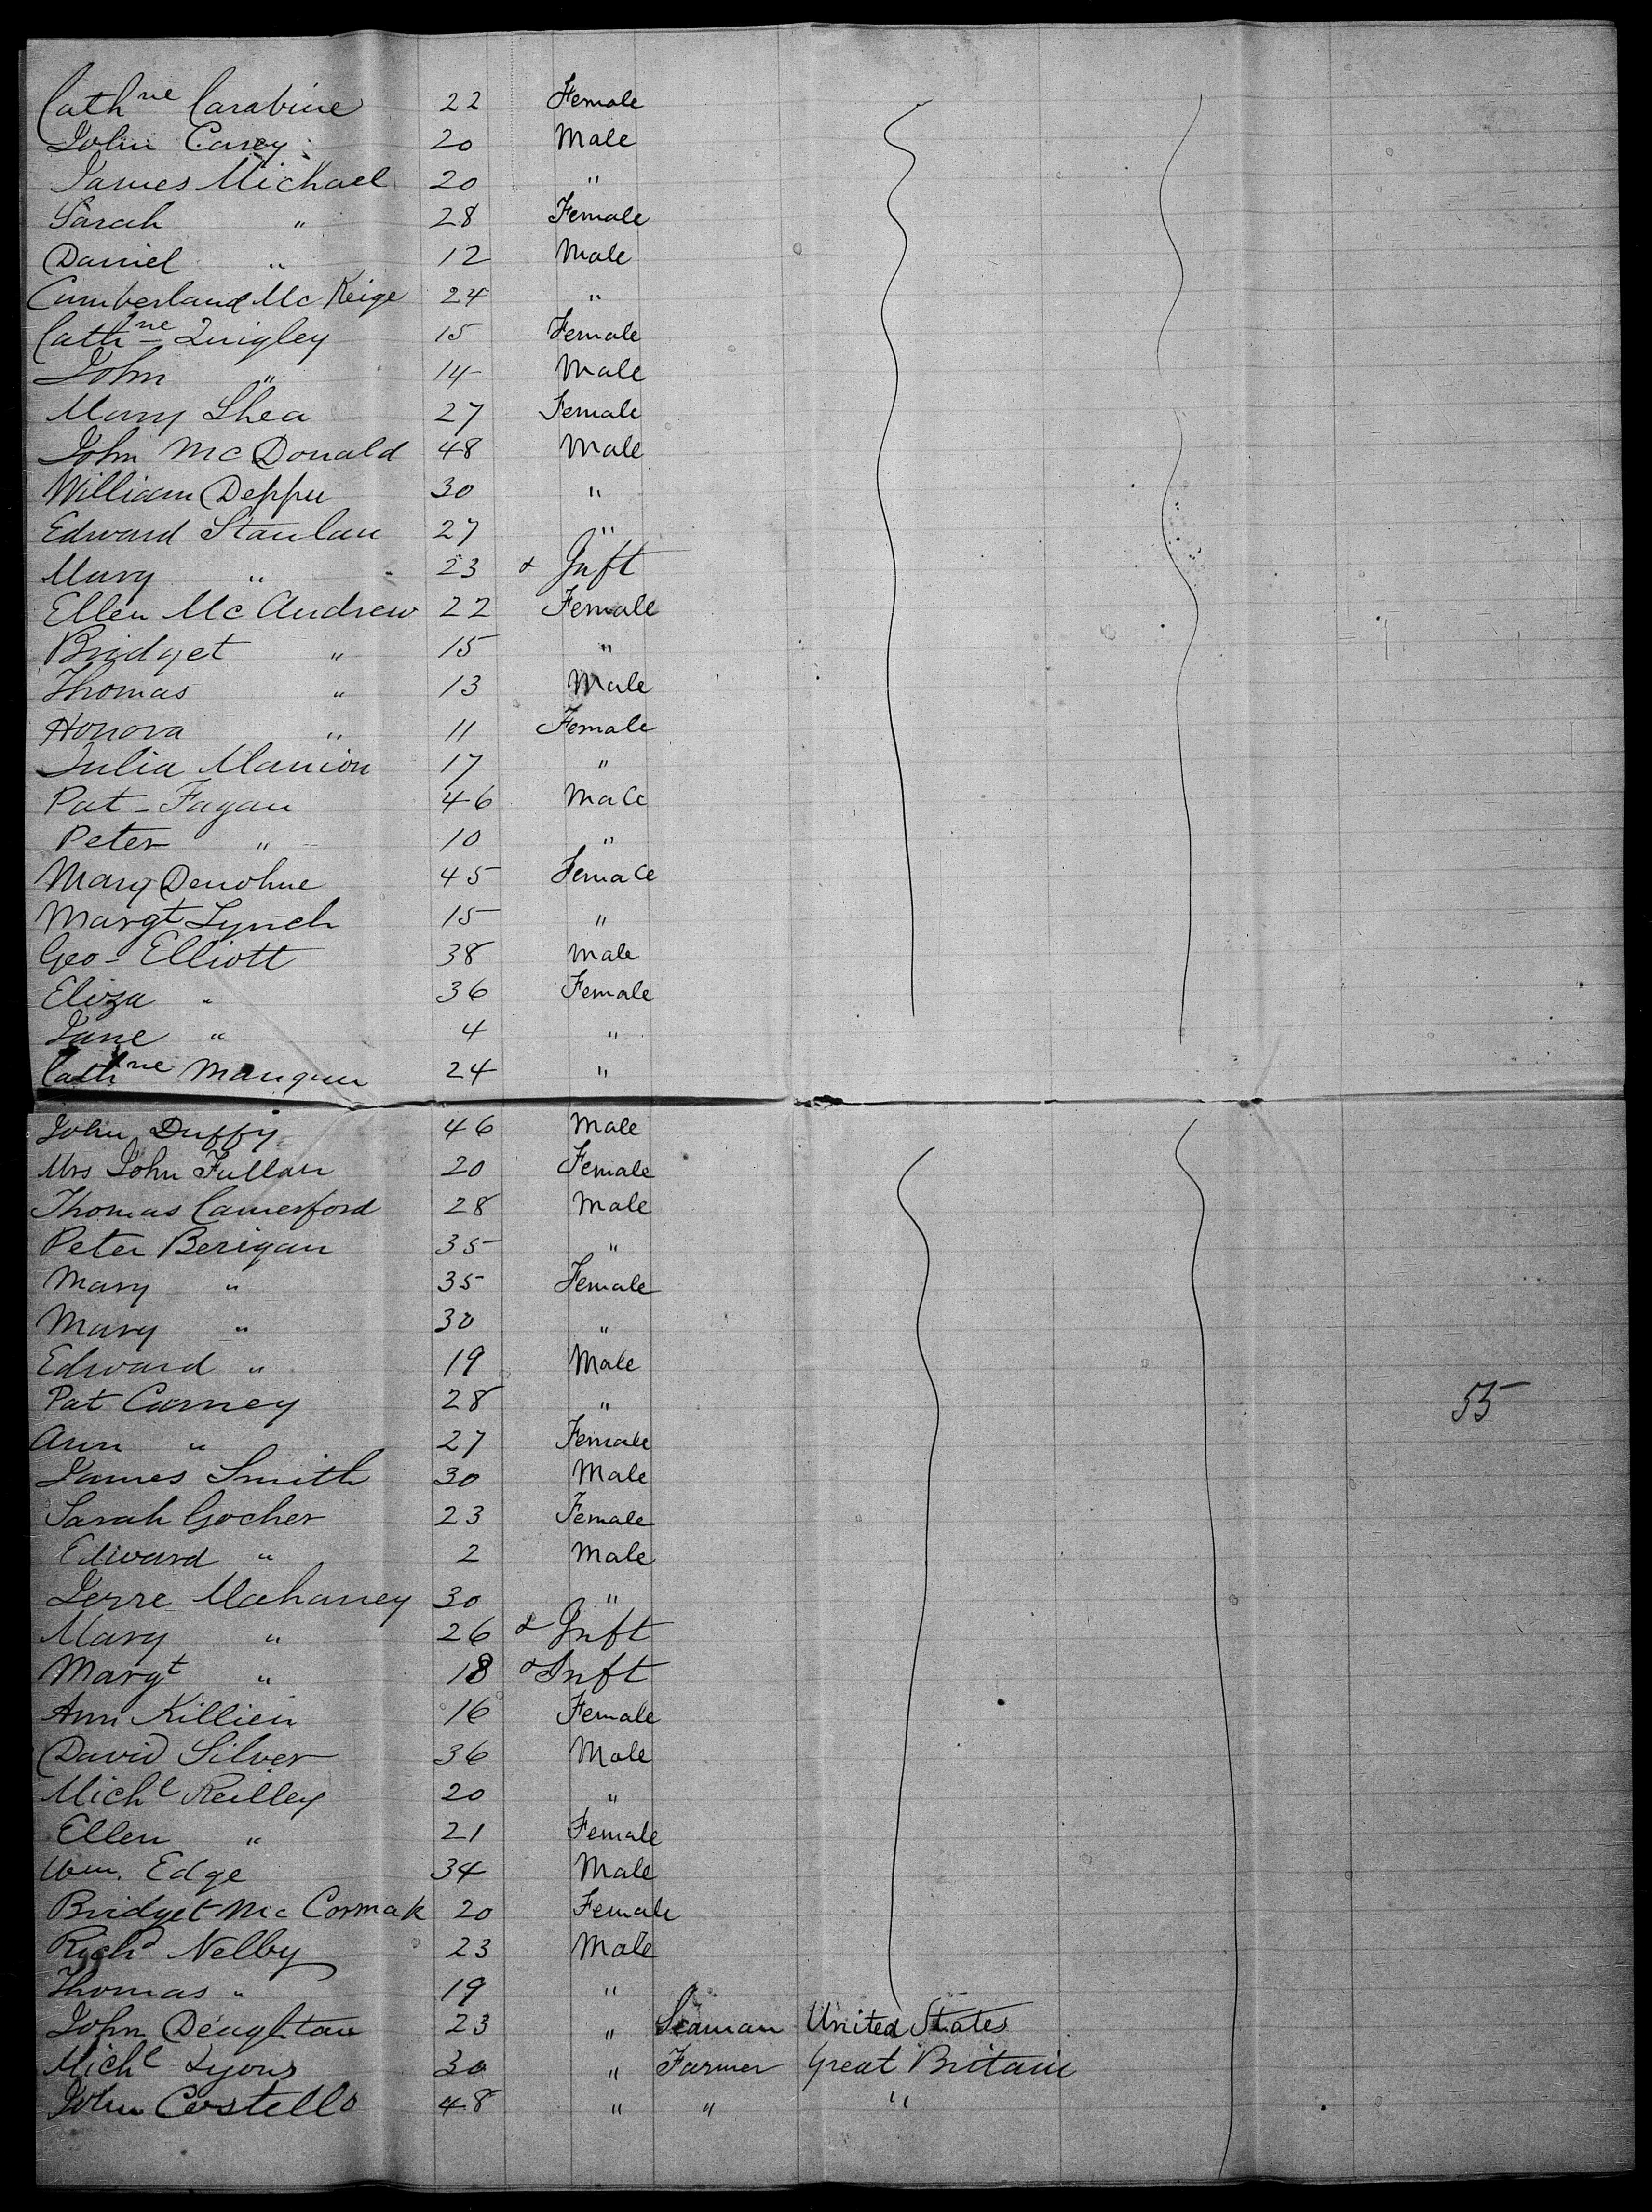 Cathne Carabine 22 Female
John Carey 20 Male
James Michael 20 "
Sarah " 28 Female
Daniel " 12 Male
Cumberland Mc Keige 24 "
Cathne Quigley 15 Female
John " 14 Male
Mary Shea 27 Female
John McDonald 48 Male
William Deppu 30 "
Edward Stanlan 27 "
Mary " 23 & Inft
Ellen McAndrew 22 Female
Bridget " 15 "
Thomas " 13 Male
Honora " 11 Female
Julia Manion 17 "
Pat - Fagan 46 Male
Peter " 10 "
Mary Donohue 45 Female
Margt Lynch 15 "
Geo - Elliott 38 Male
Eliza " 36 Female
Jane " 4 "
Cathne Mangum 24 "
John Duffy 46 Male
Mrs John Fullan 20 Female
Thomas Camerford 28 Male
Peter Berigan 35 "
Mary " 35 Female
Mary " 30 "
Edward " 19 Male
Pat Carney 28 " 55
Ann " 27 Female
James Smith 30 Male
Sarah Gocher 23 Female
Edward " 2 Male
Jerre Mahaney 30 "
Mary " 26 & Inft
Margt " 18 & Inft
Ann Killien 16 Female
David Silver 36 Male
Michl Reilley 20 "
Ellen " 21 Female
Wm. Edge 34 Male
Bridget McCormak 20 Female
Richd Nelby 23 Male
Thomas " 19 "
John Deughtan 23 " Seaman United States
Michl Lyons 30 " Farmer Great Britain
John Costello 48 " " "